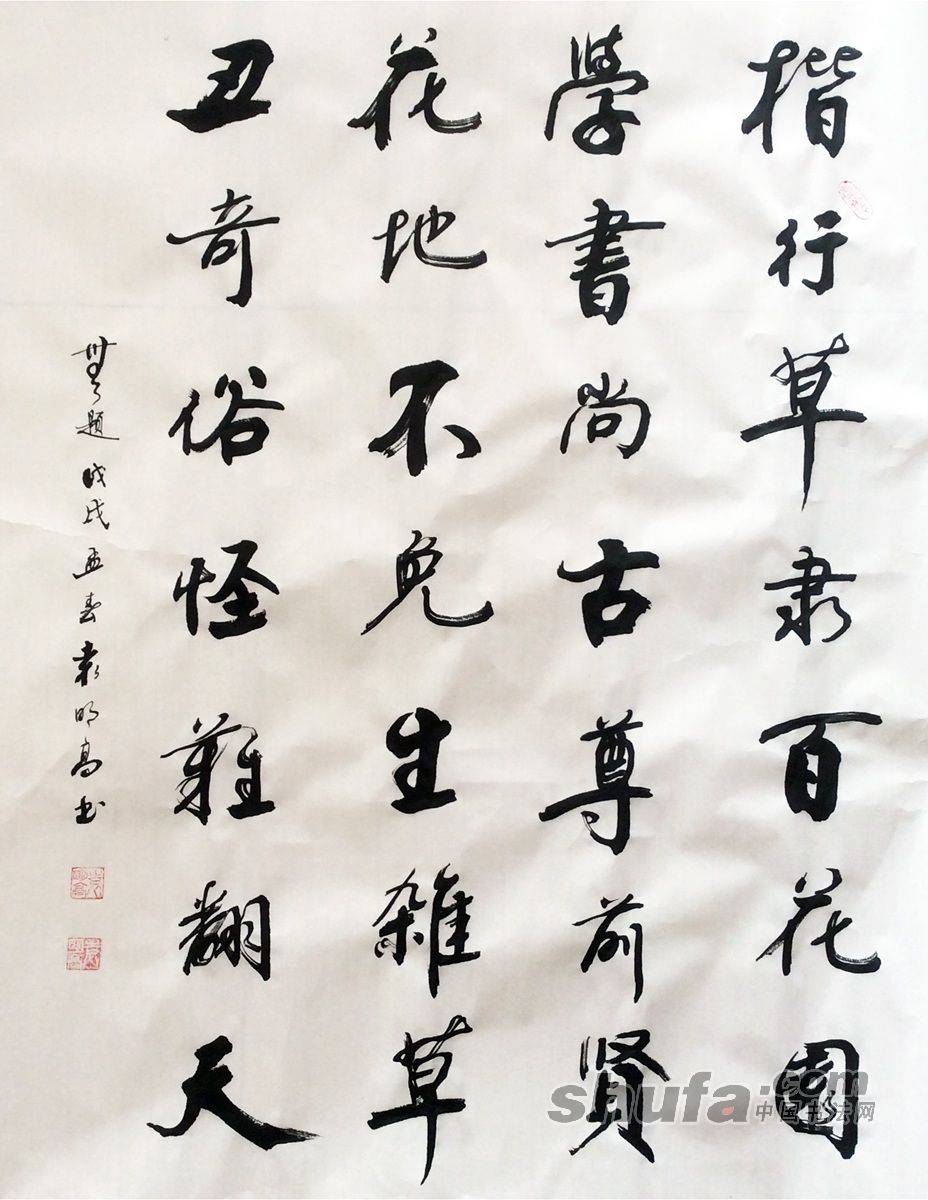 楷行草隶百花園
學書尚古尊前賢
花地不免生雜草
丑奇俗怪難翻天
無題 戊戌孟春袁明高书
shufa.com
中国书法网